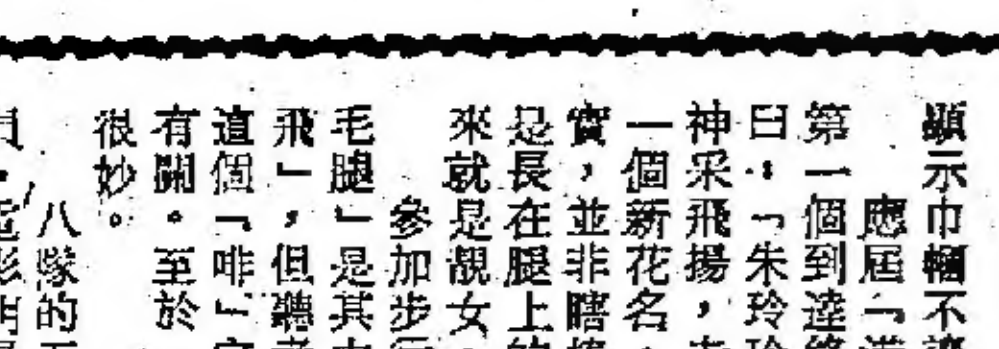 顯示巾幗不讓
應屆「
第一個到達終
曰:「朱玲玲
神采飛揚,
一個新花名,
實,並非瞎
是長在腿上的
來就是靚女,
參加步行
毛腿」是其
飛」,但聽者
這個「啡」字
有關。至於
很妙。
八隊的